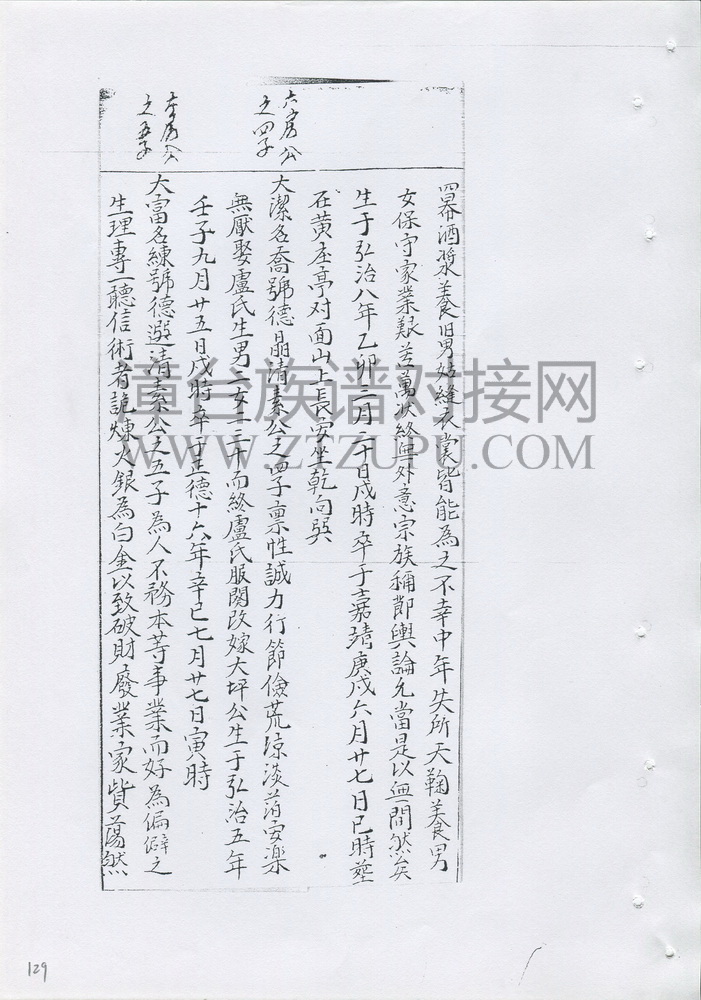 六房公
之四子
本房公
之五子
冪酒漿養旧男姑縫衣裳皆能為之不幸中年失所天鞠養男
女保守家業艱苦萬狀終無外意宗族称節輿論允當是以無間然矣
生于弘治八年乙卯三月二十日戌時卒于嘉靖庚戌六月廿七日巳時塟
在黄庄亭对面山上長安坐乾向巽
大潔名喬號德晶清素公之四子禀性誠力行節儉荒凉淡泊安楽
無厭娶盧氏生男二女二三十而終盧氏服闋改嫁大坪公生于弘治五年
壬子九月廿五日戌時卒于正德十六年辛巳七月廿七日寅時
大富名練號德選清素公之五子為人不務本等事業而好為偏僻之
生理專一聽信術者詭煉火銀為白金以致破財廢業家貲蕩然
章台族谱对接网
WWW.ZTZUPU.COM
129